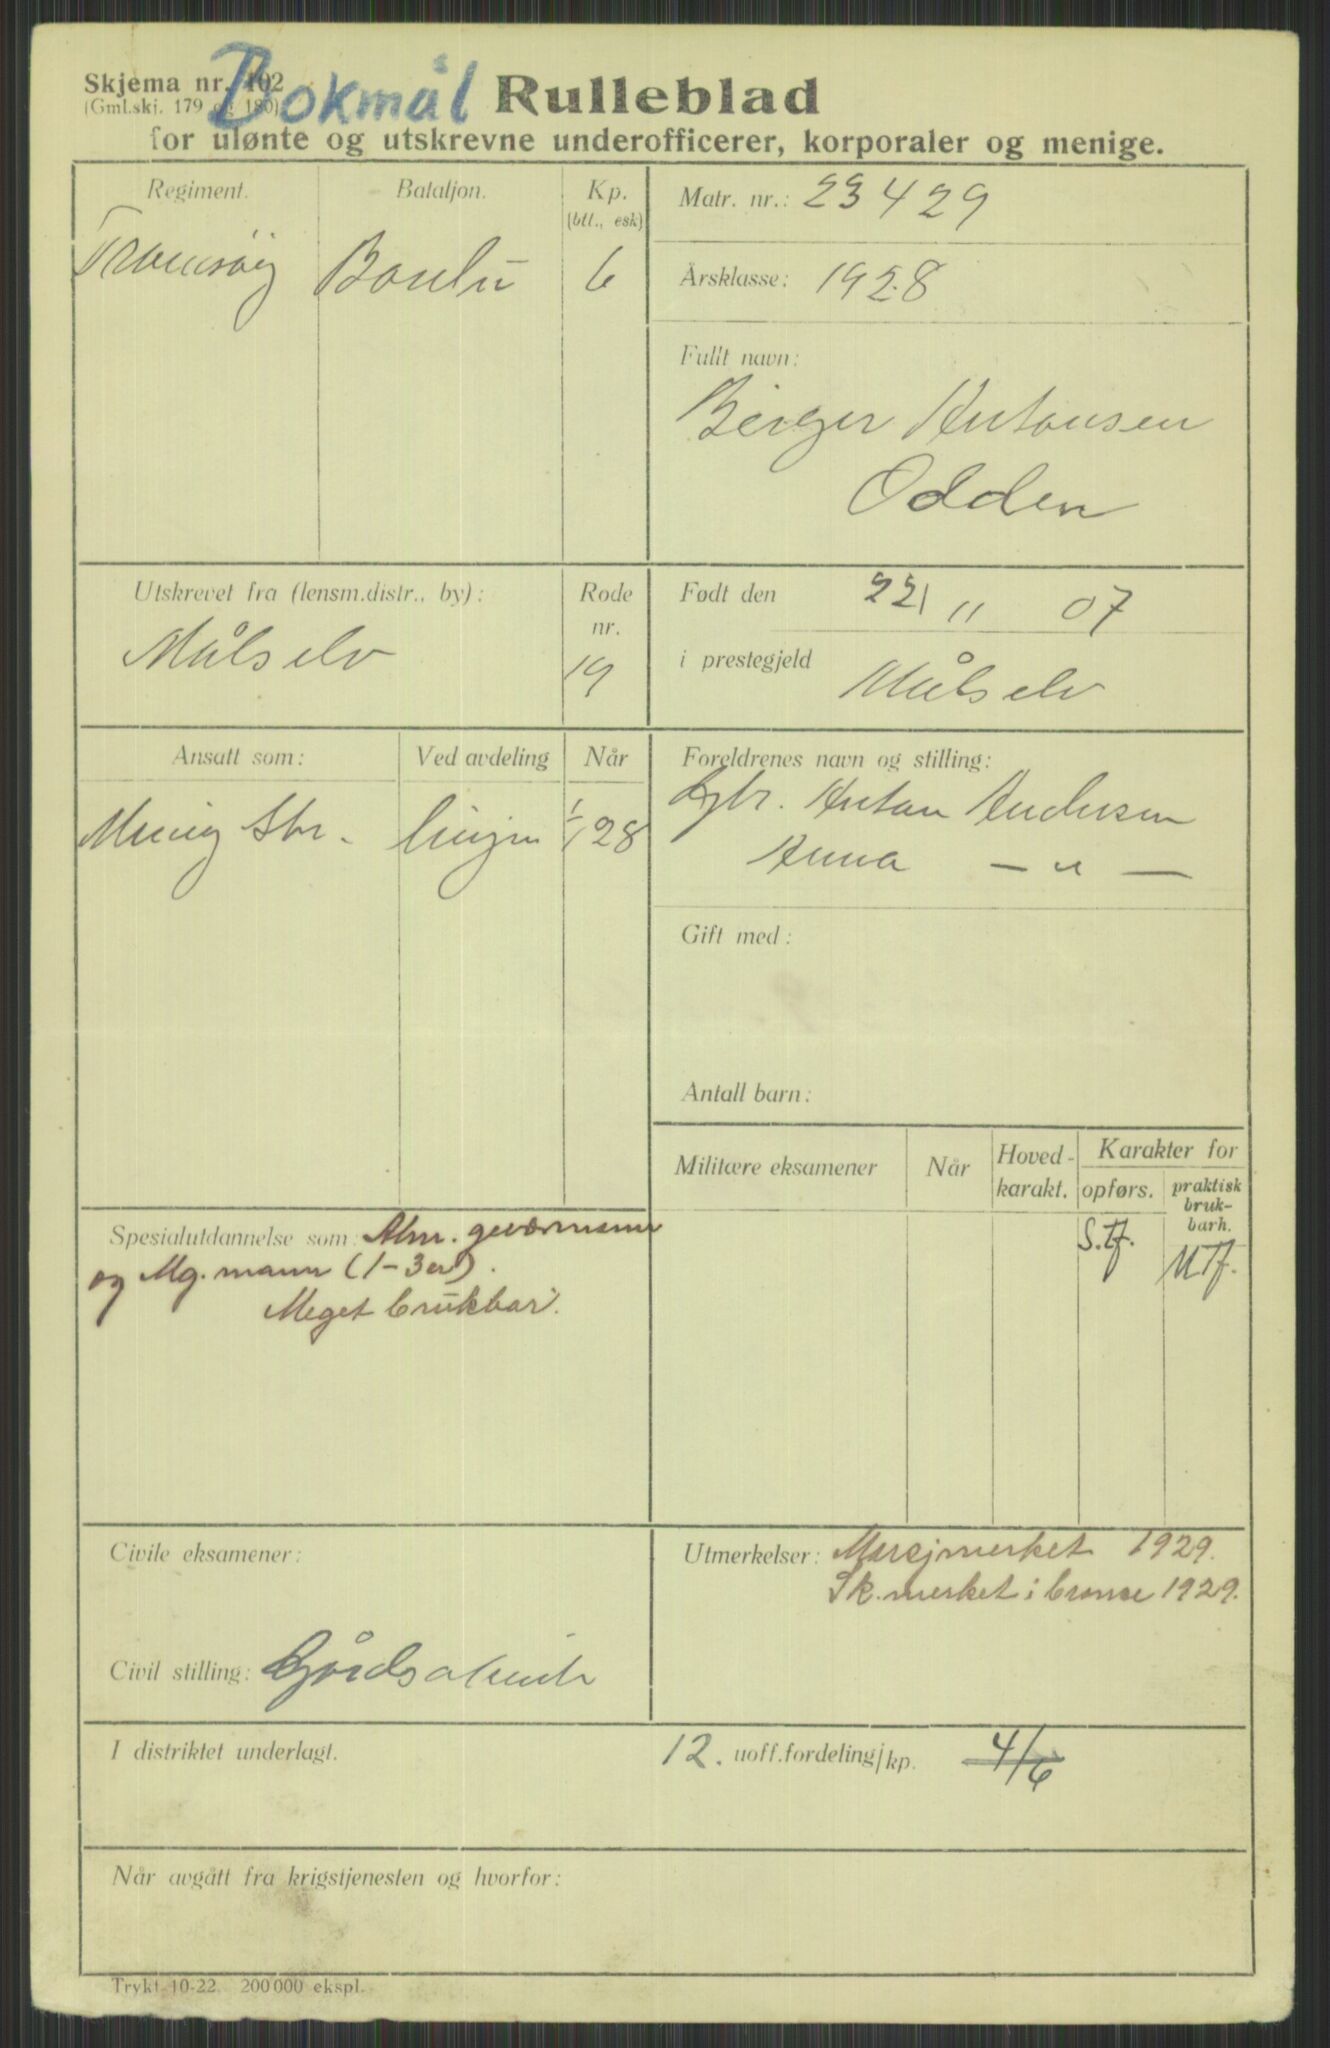 Skjema nr. 102
(Gml.skj. 179 og 180)
Bokmål
Rulleblad
for ulønte og utskrevne underofficerer, korporaler og menige.
Regiment. Bataljon. Kp. (btt., esk)
6
Matr. nr.: 23429
Årsklasse: 1928
Fullt navn:
Birger Antonsen
Odden
Utskrevet fra (lensm.distr., by):
Målselv
Rode nr.
19
Født den 22/11 07
i prestegjeld Målselv
Ansatt som: Ved avdeling Når
Menig Str. linjen 1/1 28
Foreldrenes navn og stilling:
Gbr. Anton Andersen
Anna — " —
Gift med:
Antall barn:
Militære eksamener Når Hoved-karakt. Karakter for
opførs. praktisk bruk-barh.
S.tf. M.Tf.
Spesialutdannelse som: Alm. geværmann
og Mg. mann (1-3er).
Meget brukbar.
Civile eksamener:
Civil stilling: Gårdsarbeider
Utmerkelser: Marsjmerket 1929.
Sk.merket i bronse 1929.
I distriktet underlagt. 12. uoff.fordeling/kp. 4/6
Når avgått fra krigstjenesten og hvorfor:
Trykt 10-22. 200 000 ekspl.